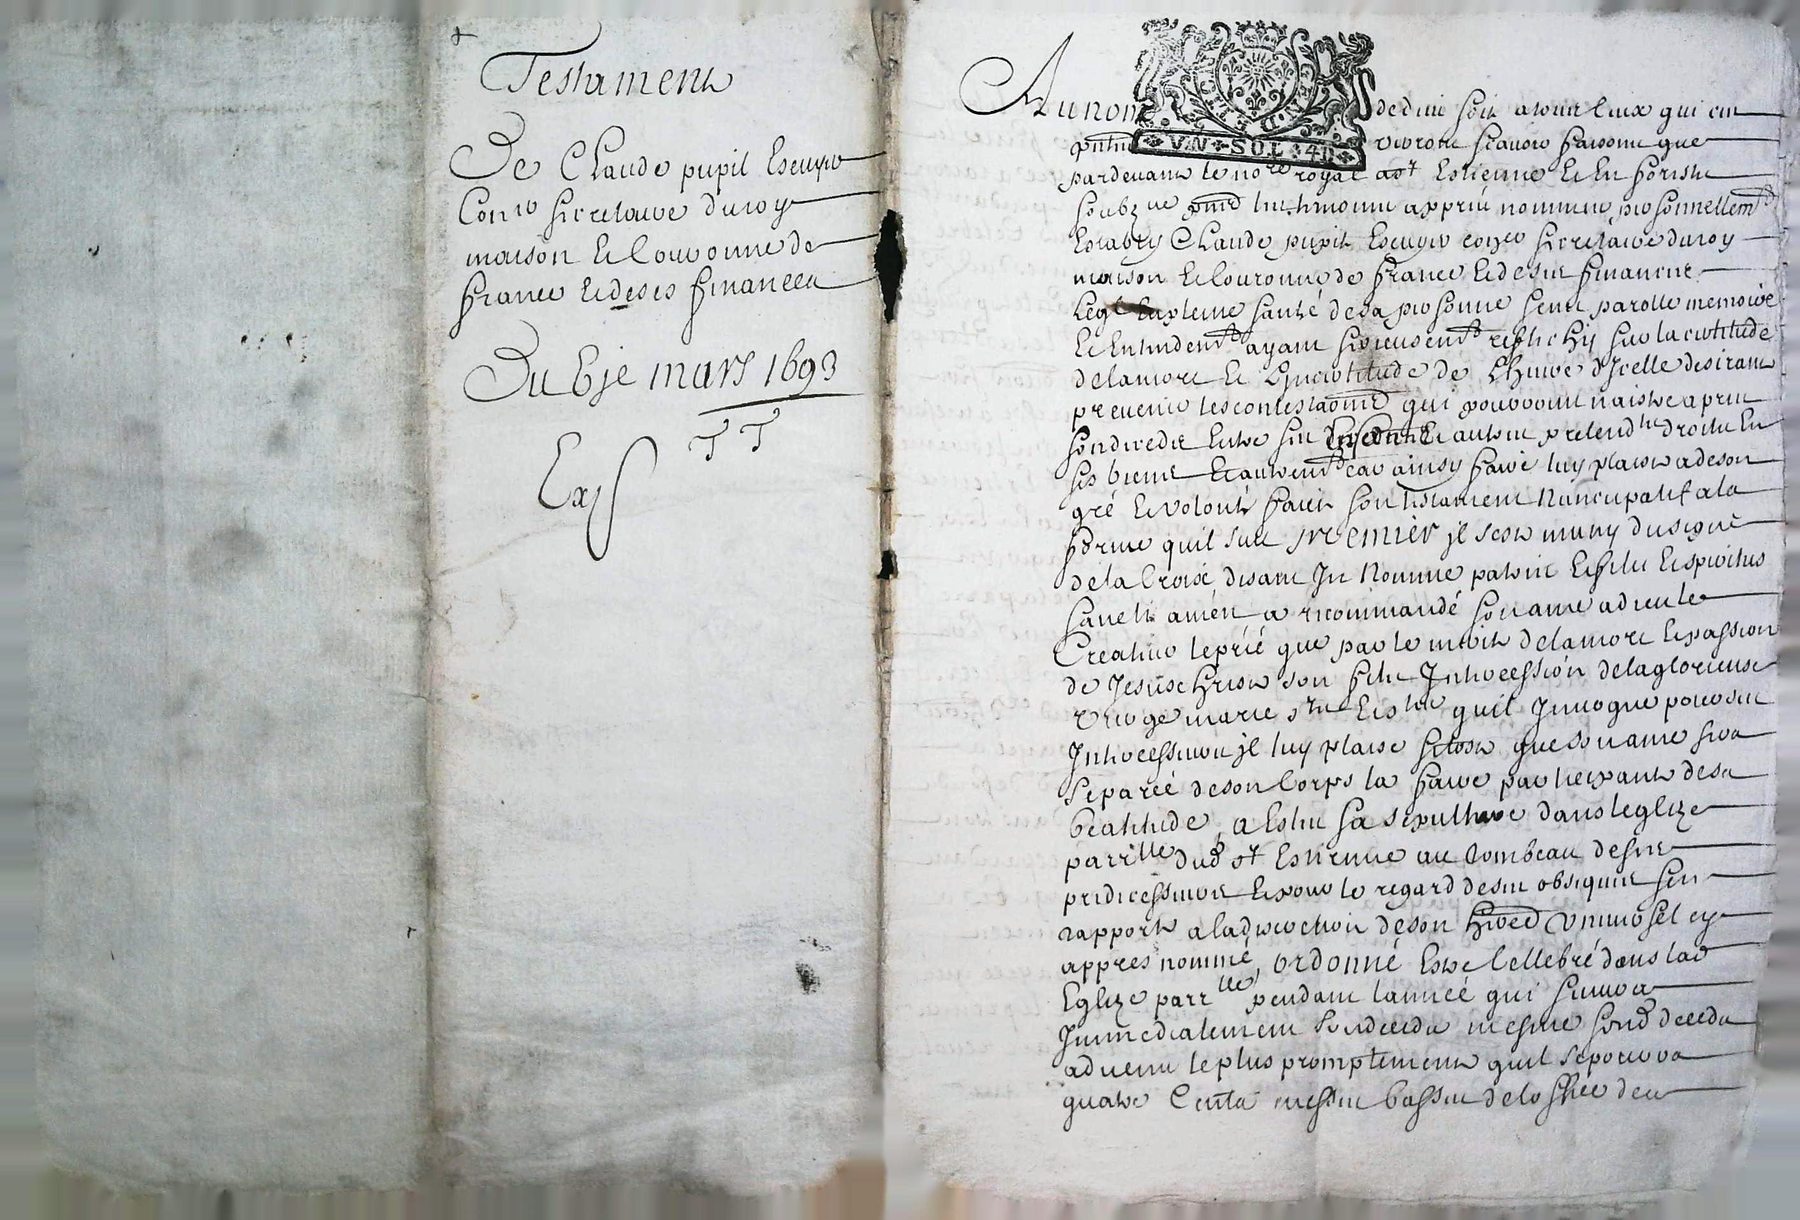 Testament
De Claude pupil Escuyer
Conser secretaire du roy
maison et Couronne de
France et de ses finances
Du 6je mars 1693
TT
Exp
Au nom de dieu soit a tous Ceux qui ces
VN·SOL·4D
verront scavoir faisons que
pardevant le nore royal a st Estienne et en forest
soubzne et tesmoins apprés nommés personnellemt
Estably Claude pupil Escuyer conser secretaire du roy
maison et Couronne de france et de ses finances
Leql en pleine santé de sa personne sens parolle memoire
et Entendemt ayant serieusemt reflechy sur la certitude
de la mort et Lincertitude de Lheure d'Jcelle desirant
prevenir les contestaons qui pourroient naistre apres
son decedz Entre ses et autres pretendts droits En
ses biens et autremt car ainsy faire luy plaist a de son
gré et volonté faict son testament Nuncupatif a la
forme quil suit premier jl s'est muny du signe
de la Croix disant Jn Nomine patris et filii et spiritus
sancti amen a recommandé son ame a dieu le
Createur le prié que par le merite de la mort et passion
de Jesus christ son fils Jntercession de la glorieuse
vierge marie sts et stes quil Jnvoque pour ses
Jntercesseurs jl luy plaise sitost que son ame sera
separée de son Corps la faire participante de sa
beatitude, a Esleu sa sepulture dans leglize
parrlle dud st Estienne au tombeau de ses
predecesseurs et pour le regard de ses obseques s'en
rapporte a la direction de son hered Universel cy
apprés nommé, ordonne Estre Cellebré dans lad
Eglize parrlle pendant lannée qui suivra
Jmmediatement son decedz mesme sond decedz
advenu le plus promptement quil se pourra
quatre Cents messes basses de loffice des